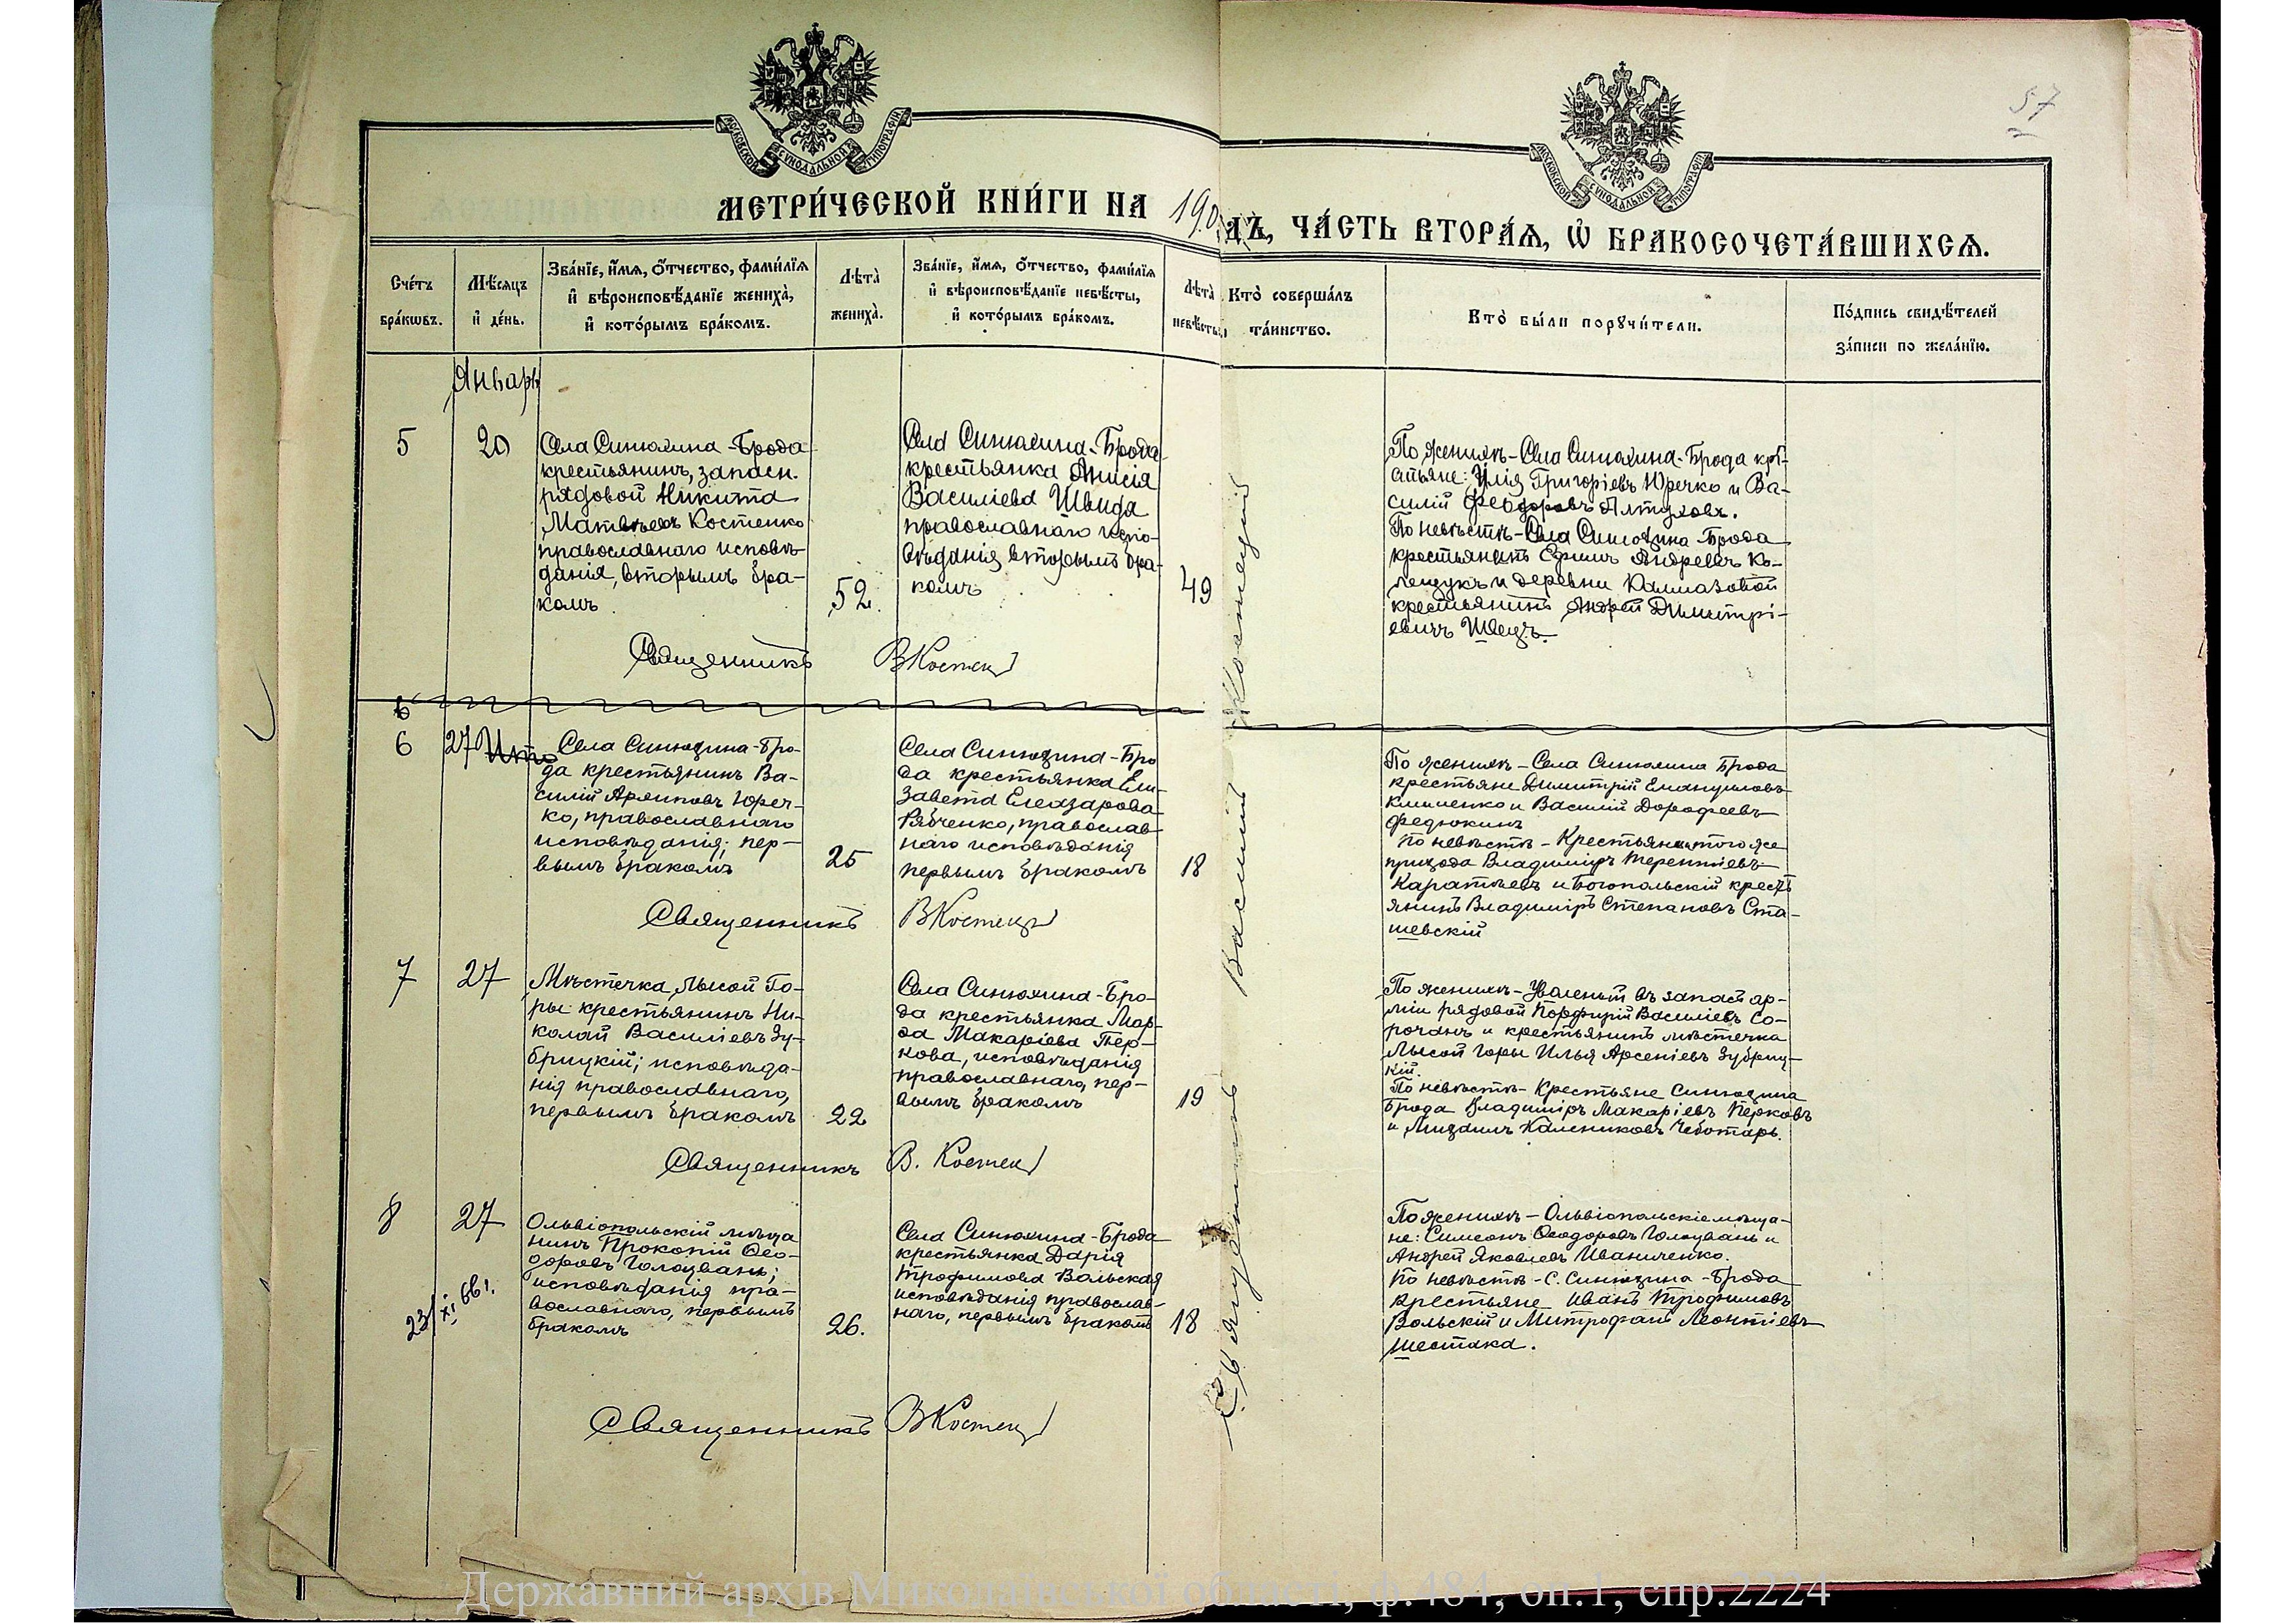 57
МОСКОВСКОЙ СѴНОДАЛЬНОЙ ТИПОГРАФІИ
МОСКОВСКОЙ СѴНОДАЛЬНОЙ ТИПОГРАФІИ
МЕТРИ́ЧЕСКОЙ КНИ́ГИ НА 190
ДЪ, ЧА́СТЬ ВТОРА́Ѧ, Ѡ҆ БРАКОСОЧЕТА́ВШИХСѦ.
Сче́тъ бра́кωвъ.
Мѣ́сѧцъ и҆ де́нь.
Зва́нїе, и҆́мѧ, ѻ҆́тчество, фами́лїѧ и҆ вѣроисповѣ́данїе жениха̀, и҆ кото́рымъ бра́комъ.
Лѣта̀ жениха̀.
Зва́нїе, и҆́мѧ, ѻ҆́тчество, фами́лїѧ и҆ вѣроисповѣ́данїе невѣ́сты, и҆ кото́рымъ бра́комъ.
Лѣта̀ невѣ́сты.
Кто̀ соверша́лъ та́инство.
Кто̀ бы́ли порꙋчи́тели.
По́дпись свидѣ́телей за́писи по жела́нїю.
Январь
5
20
Села Синюхина-Брода
крестьянинъ, запасн.
рядовой Никита
Матвѣевъ Костенко
православнаго исповѣ-
данія, вторымъ бра-
комъ.
52.
Села Синюхина-Брода
крестьянка Анисія
Василіева Швида
православнаго испо-
вѣданія, вторымъ бра-
комъ
49
По женихѣ - Села Синюхина-Брода кре-
стьяне: Илія Григоріевъ Юречко и Ва-
силій Феодоровъ Алтуховъ.
По невѣстѣ - Села Синюхина Брода
крестьянинъ Ефимъ Андреевъ Ко-
лещукъ и деревни Калмазовой
крестьянинъ Андрей Димитрі-
евичъ Швецъ.
Священникъ ВКостец
6
27
Села Синюхина-Бро-
да крестьянинъ Ва-
силій Архиповъ Юреч-
ко, православнаго
исповѣданія; пер-
вымъ бракомъ
25
Села Синюхина-Бро
да крестьянка Ели-
завета Елеазарова
Рябченко, православ-
наго исповѣданія
первымъ бракомъ
18
По женихѣ - Села Синюхина Брода
крестьяне Димитрій Емануиловъ
Клименко и Василій Дорофеевъ
Федюкинъ
По невѣстѣ - Крестьянинъ того же
прихода Владиміръ Терентіевъ
Каратѣевъ и Богопольскій кресть
янинъ Владиміръ Степановъ Ста-
шевскій
Священникъ ВКостец
7
27
Мѣстечка Лысой Го-
ры крестьянинъ Ни-
колай Василіевъ Зу-
брицкій; исповѣда-
нія православнаго,
первымъ бракомъ
22
Села Синюхина-Бро-
да крестьянка Мар-
фа Макаріева Пер-
кова, исповѣданія
православнаго, пер-
вымъ бракомъ
19
По женихѣ - Уволеный въ запасъ ар-
міи рядовой Порфирій Василіевъ Со-
рочанъ и крестьянинъ мѣстечка
Лысой Горы Илья Арсеніевъ Зубриц-
кій.
По невѣстѣ - Крестьяне Синюхина
Брода Владиміръ Макаріевъ Перковъ
и Михаилъ Калениковъ Чеботарь.
Священникъ В. Костец
8
27
23/XI 661.
Ольвіопольскій мѣща
нинъ Прокопій Фео-
доровъ Голоцвань;
исповѣданія пра-
вославнаго, первымъ
бракомъ
26.
Села Синюхина-Брода
крестьянка Дарія
Трофимова Вольская
исповѣданія православ-
наго, первымъ бракомъ
18
По женихѣ - Ольвіопольскіе мѣща-
не: Симеонъ Феодоровъ Голоцвань и
Андрей Яковлевъ Иваниченко.
По невѣстѣ - С. Синюхина-Брода
крестьяне Иванъ Трофимовъ
Вольскій и Митрофанъ Леонтіевъ
Шестака.
Священникъ ВКостец
Священникъ Василій Костецкій
Державний архів Миколаївської області, ф.484, оп.1, спр.2224